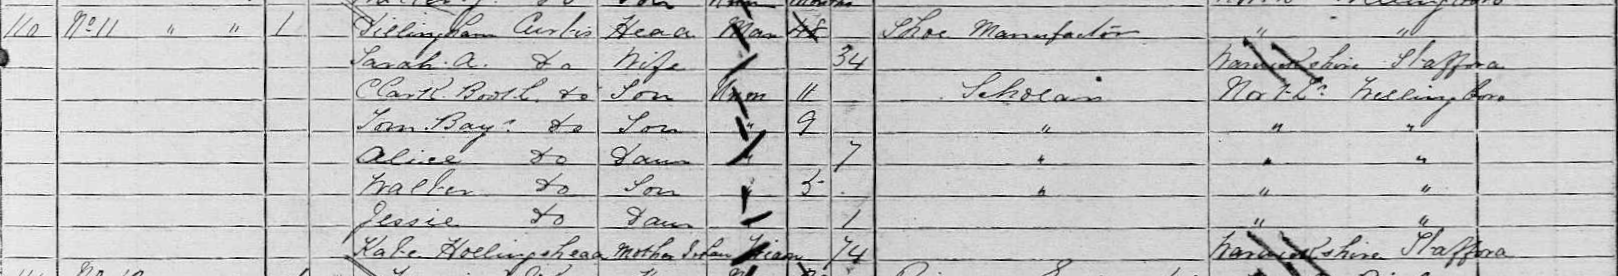 110 No 11 " " 1 Gillingham Curtis Head Mar 48 Shoe Manufactor " "
Sarah. A. do Wife 34 Warwickshire Stafford
Clark. Booth. do Son Unm 11 Scholar North. Wellingboro
Tom. Bays. do Son " 9 " " "
Alice do Daur " 7 " " "
Walter do Son 5 " " "
Jessie do Daur 1 " "
Kate Hollingshead Mother in Law 74 Warwickshire Stafford